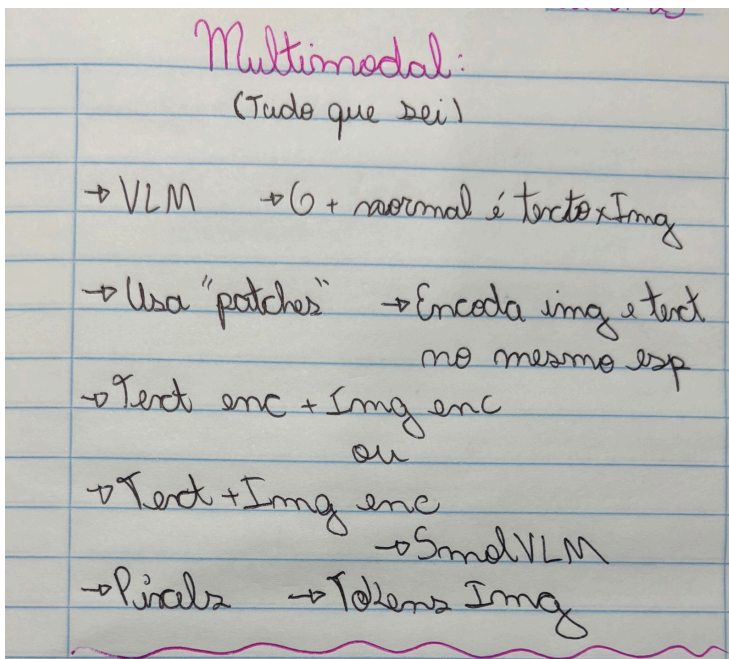 Multimodal:
(Tudo que sei)
→ VLM → O + normal é texto x Img
→ Usa "patches" → Encoda img e text
no mesmo esp
→ Text enc + Img enc
ou
→ Text + Img enc
→ SmolVLM
→ Pixels → Tokens Img